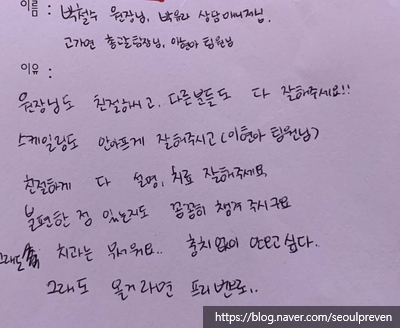 이름 : 박철수 원장님, 박유라 상담매니저님,
고가연 총괄팀장님, 이현아 팀원님
이유 :
원장님도 친절하시고, 다른분들도 다 잘해주세요!!
스케일링도 안아프게 잘해주시고 (이현아 팀원님)
친절하게 다 설명, 치료 잘해주세요,
불편한 점 있는지도 꼼꼼히 챙겨주시구요
그래도 치과는 무서워요.. 충치없이 안오고싶다..
그래도 올거라면 프리벤트로..
https://blog.naver.com/seoulpreven